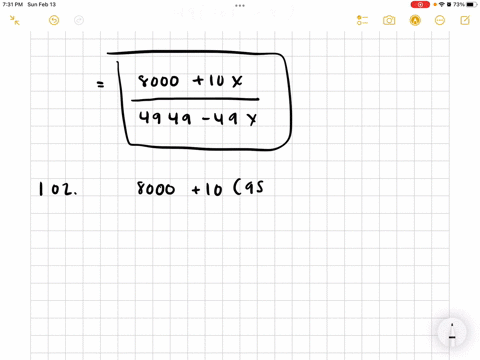 7:31 PM Sun Feb 13
73%
= 8000 + 10 x
4949 - 49 x
102. 8000 + 10 (95